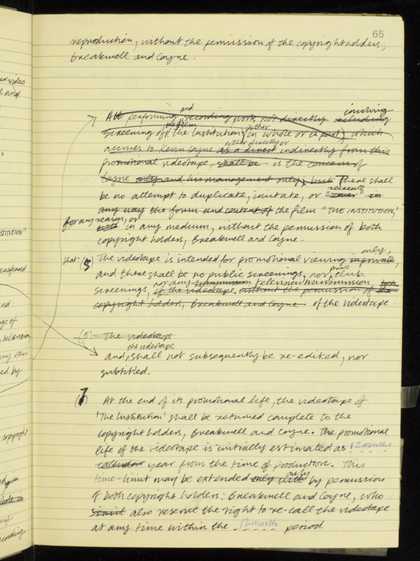 65
reproduction, without the permission of the copyright holders,
Breakwell and Coyne.
and
All performing recording work not directly involving including
screening of the Institution, in whole or in part, which
either directly or
accrues to Kevin Coyne as a direct indirectly from this
promotional videotape, shall be - is the concern of
Coyne and his management only, but There shall
be no attempt to duplicate, imitate, or
any way the form and content of the film "THE INSTITUTION,"
for any reason, or
in any medium, without the permission of both
copyright holders, Breakwell and Coyne.
only,
(5) The videotape is intended for promotional viewing
and there shall be no public screenings, nor club
private
screenings, nor any television transmission
of the videotape, without the permission of the
copyright holders, Breakwell and Coyne - of the videotape
(6) The videotape
the videotape
and shall not subsequently be re-edited, nor
subtitled.
7 At the end of its promotional life, the videotape of
'The Institution' shall be returned complete to the
copyright holders, Breakwell and Coyne. The promotional
life of the videotape is initially estimated as 12 months
calendar year from the time of production. This
time-limit may be extended only by permission
of both copyright holders: Breakwell and Coyne, who
also reserve the right to re-call the videotape
at any time within the 12 month period